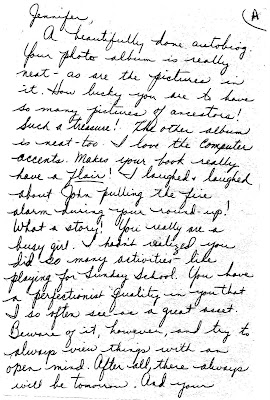 Jennifer,
A
A beautifully done autobiog.
Your photo album is really
neat - as are the pictures in
it. How lucky you are to have
so many pictures of ancestors!
Such a treasure! The other album
is neat - too. I love the computer
accents. Makes your book really
have a flair! I laughed & laughed
about John pulling the fire
alarm during your round-up!
What a story! You really are a
busy girl. I hadn't realized you
did so many activities - like
playing for Sunday School. You have
a perfectionist quality in you that
I so often see as a great asset.
Beware of it, however, and try to
always view things with an
open mind. After all, there always
will be tomorrow. And your